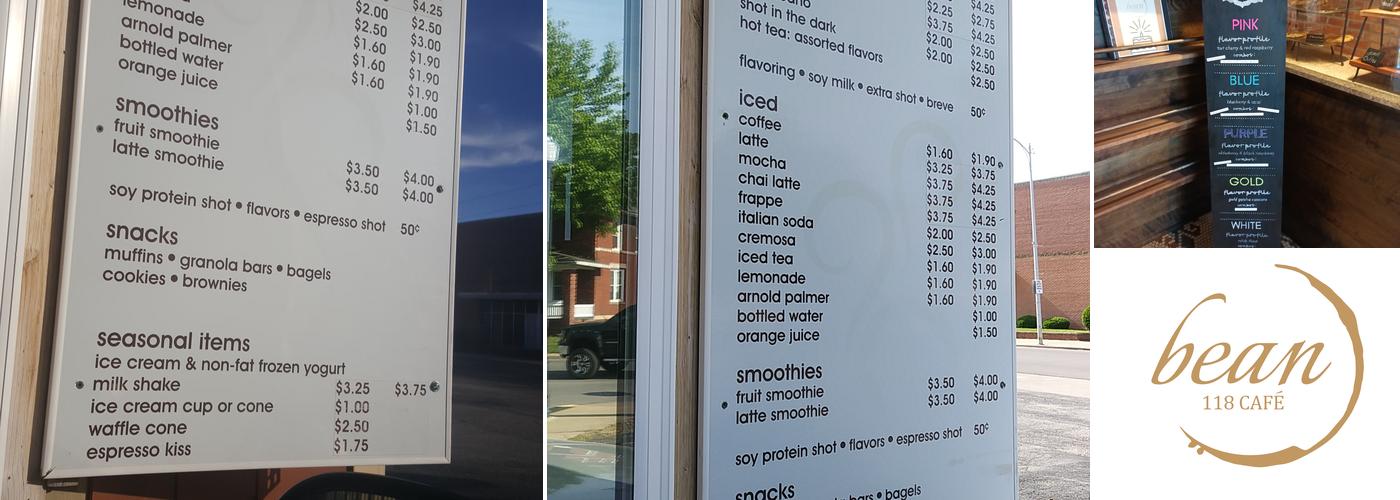 $4.25
$2.00 $2.50
$2.50 $3.00
$1.60 $1.90
lemonade $1.60 $1.90
arnold palmer $1.60 $1.90
bottled water $1.00
orange juice $1.50
smoothies
fruit smoothie $3.50 $4.00
latte smoothie $3.50 $4.00
soy protein shot • flavors • espresso shot 50¢
snacks
muffins • granola bars • bagels
cookies • brownies
seasonal items
ice cream & non-fat frozen yogurt
milk shake $3.25 $3.75
ice cream cup or cone $1.00
waffle cone $2.50
espresso kiss $1.75
$2.25 $2.75
$3.75 $4.25
shot in the dark $2.00 $2.50
hot tea: assorted flavors $2.00 $2.50
$2.50
flavoring • soy milk • extra shot • breve 50¢
iced
coffee $1.60 $1.90
latte $3.25 $3.75
mocha $3.75 $4.25
chai latte $3.75 $4.25
frappe $3.75 $4.25
italian soda $2.00 $2.50
cremosa $2.50 $3.00
iced tea $1.60 $1.90
lemonade $1.60 $1.90
arnold palmer $1.60 $1.90
bottled water $1.00
orange juice $1.50
smoothies
fruit smoothie $3.50 $4.00
latte smoothie $3.50 $4.00
soy protein shot • flavors • espresso shot 50¢
snacks
bars • bagels
PINK
flavor profile
BLUE
flavor profile
PURPLE
flavor profile
GOLD
flavor profile
WHITE
flavor profile
bean
118 CAFÉ